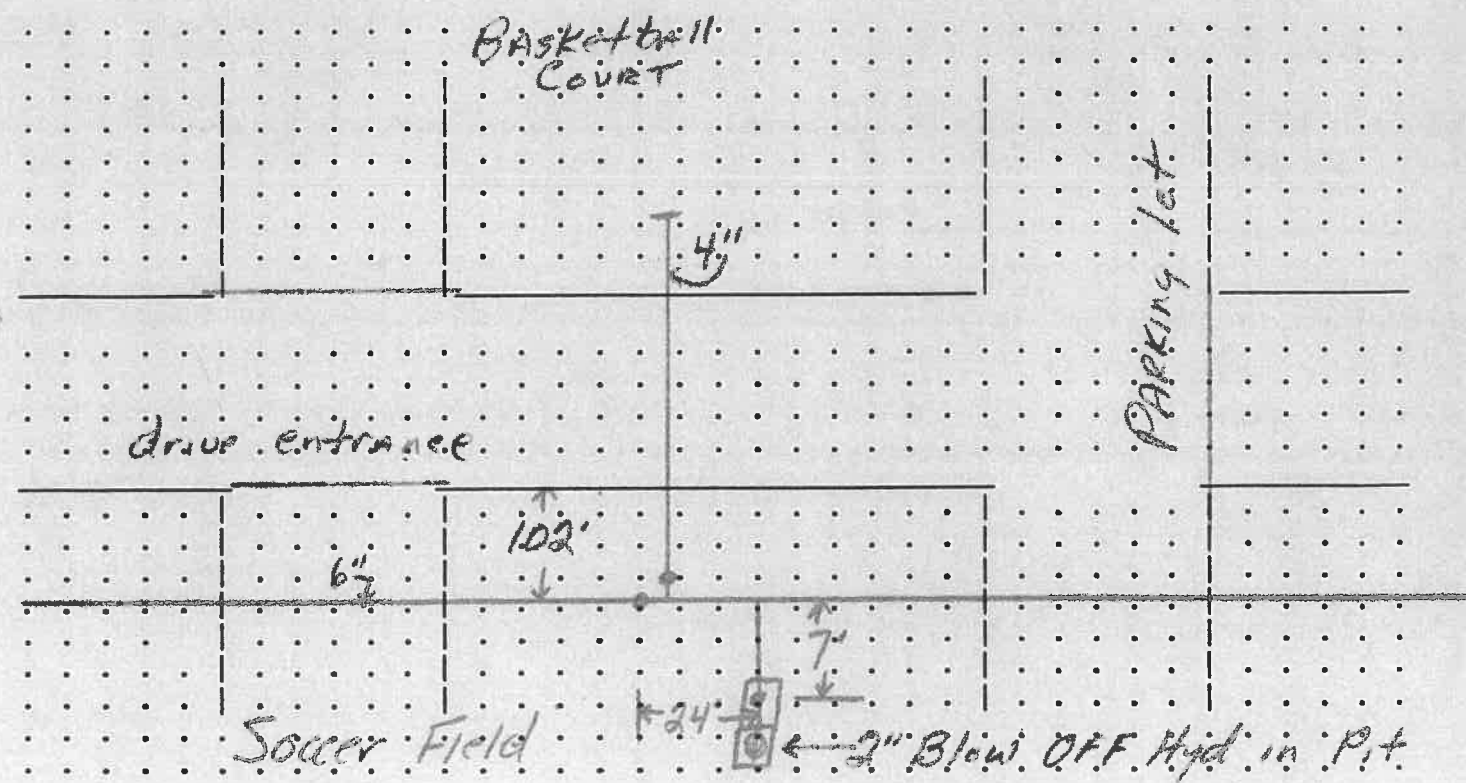 BAsketball
COURT
4"
PARKing lot
drive entrance
102'
6"
7'
24'
Soccer Field
2" Blow OFF Hyd in Pit